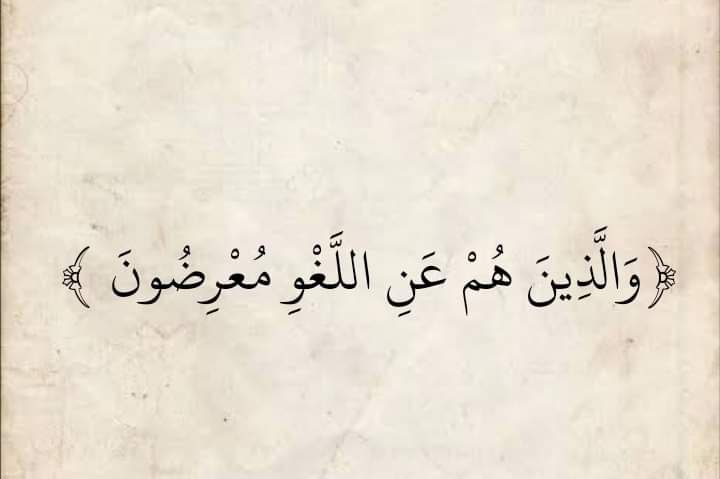 ﴿ وَالَّذِينَ هُمْ عَنِ اللَّغْوِ مُعْرِضُونَ ﴾